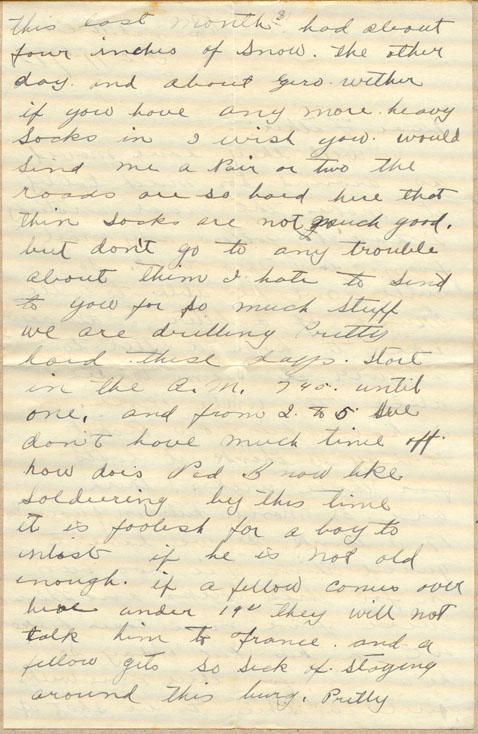 this last month. had about
four inches of Snow. the other
day. and about Zero wether
if you have any more heavy
Socks in I wish you. would
Send me a Pair or two the
roads are so hard here that
thin socks are not much good.
but don't go to any trouble
about thim I hate to Send
to you for so much Stuff
we are drilling Pretty
hard these days. Start
in the A.M. 745. until
one. and from 2. to 5 we
don't have much time off.
how dois Ped B now like
Soldiering by this time
it is foolish for a boy to
inlist if he is not old
enough. if a fellow comes over
here under 19 they will not
talk him to France. and a
fellow gits so sick of staying
around this burg. Pretty